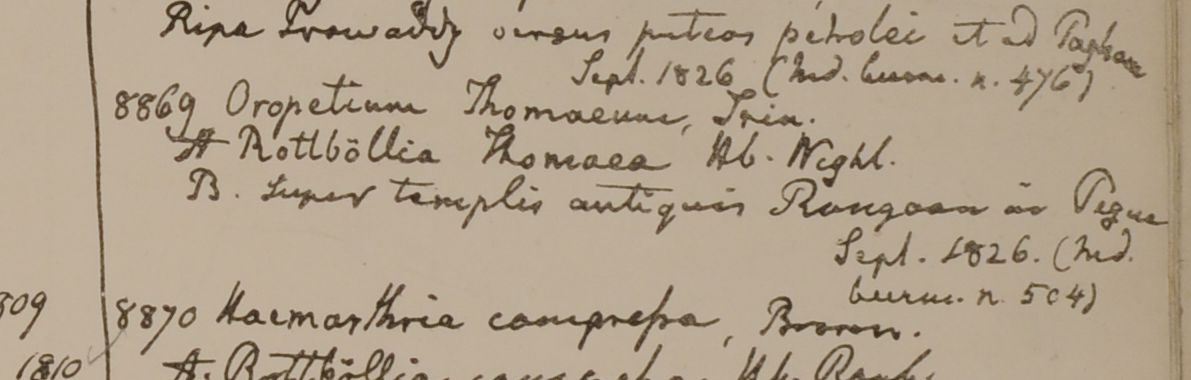 Ripa Irawaddy versus puteos petrolei et ad Pagham
Sept. 1826 (hrd. burm. n. 476)
8869 Oropetium Thomaeum, Trin.
A Rottböllia Thomaea Hb. Wight.
B. Super templis antiquis Rangoon in Pegue
Sept. 1826. (hrd.
burm. n. 504)
309
8870 Haemarthria compressa, Brown.
1810
A. Rottböllia compressa Hb. Roxb.